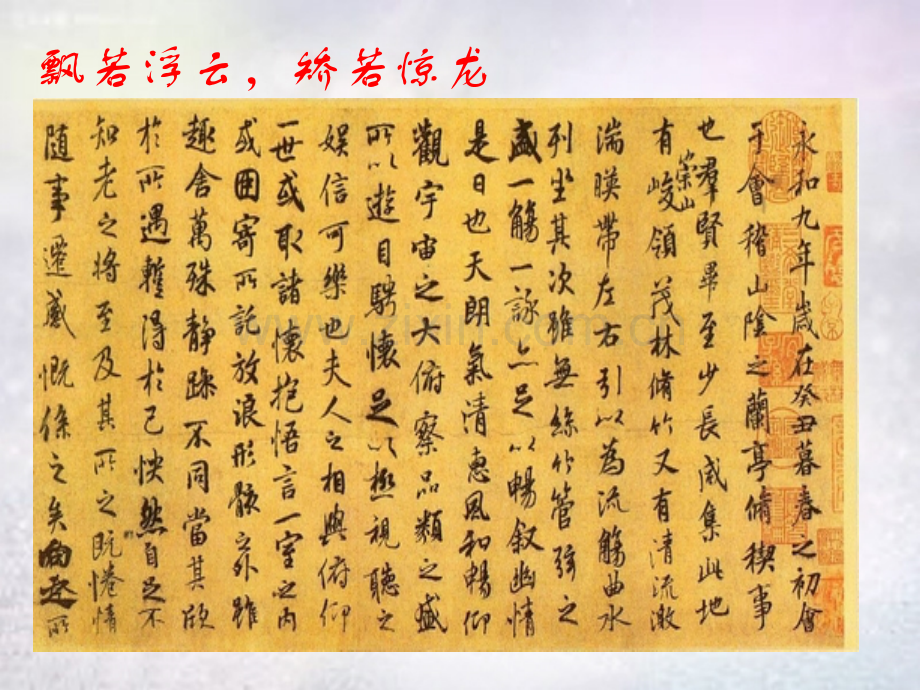 飘若浮云，矫若惊龙
永和九年歲在癸丑暮春之初會
于會稽山陰之蘭亭脩稧事
也羣賢畢至少長咸集此地
有崇山峻領茂林脩竹又有清流激
湍暎帶左右引以為流觴曲水
列坐其次雖無絲竹管弦之
盛一觴一詠亦足以暢叙幽情
是日也天朗氣清惠風和暢仰
觀宇宙之大俯察品類之盛
所以遊目騁懷足以極視聽之
娛信可樂也夫人之相與俯仰
一世或取諸懷抱悟言一室之內
或因寄所託放浪形骸之外雖
趣舍萬殊静躁不同當其欣
於所遇蹔得於己怏然自足不
知老之將至及其所之既惓情
隨事遷感慨係之矣向之所